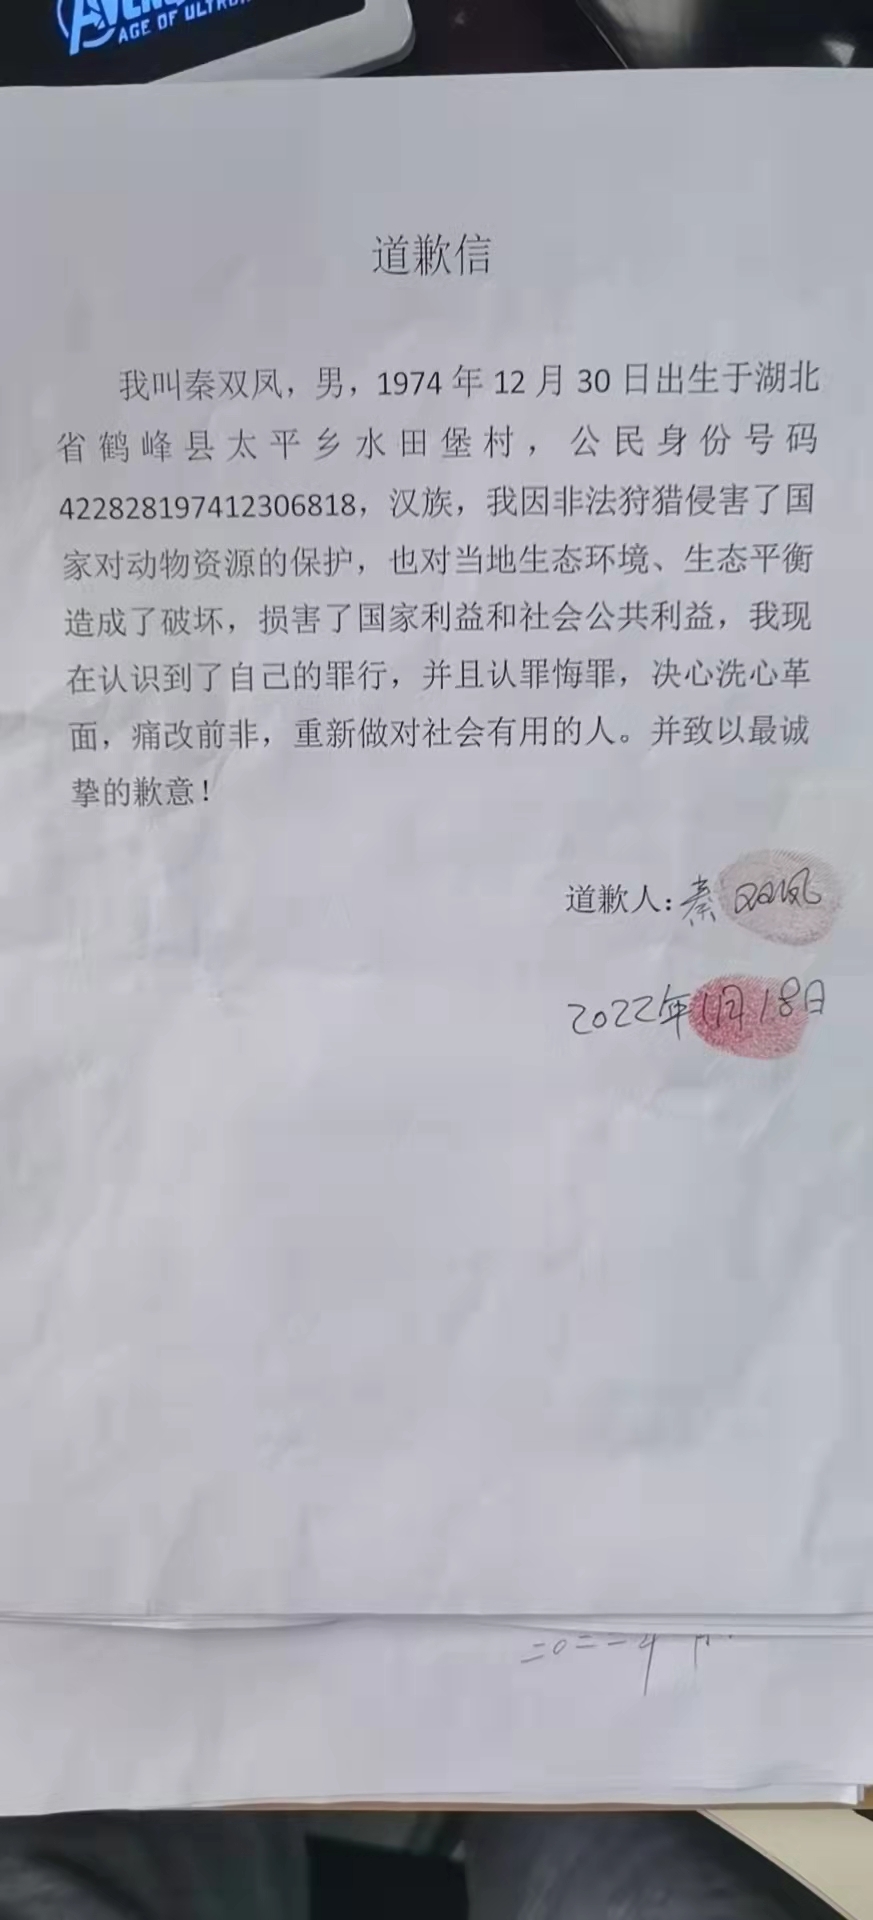 AGE OF ULTRON
道歉信
我叫秦双凤，男，1974年12月30日出生于湖北
省鹤峰县太平乡水田堡村，公民身份号码
422828197412306818，汉族，我因非法狩猎侵害了国
家对动物资源的保护，也对当地生态环境、生态平衡
造成了破坏，损害了国家利益和社会公共利益，我现
在认识到了自己的罪行，并且认罪悔罪，决心洗心革
面，痛改前非，重新做对社会有用的人。并致以最诚
挚的歉意！
道歉人：秦双凤
2022年1月18日